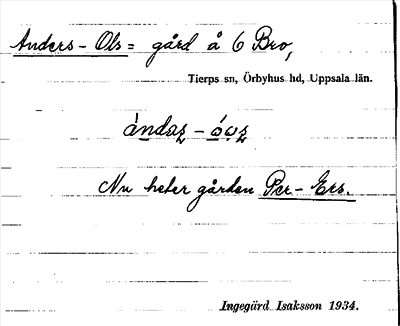 Anders-Ols= gård å 6 Bro,
Tierps sn, Örbyhus hd, Uppsala län.
Nu heter gården Per-Ers.
Ingegärd Isaksson 1934.